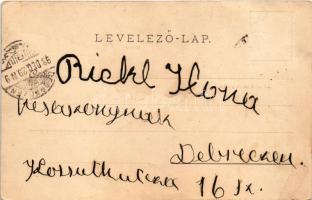 LEVELEZŐ-LAP.
Rickl Ilona
kisasszonynak
Debreczen.
Kossuth utcza 16 sz.